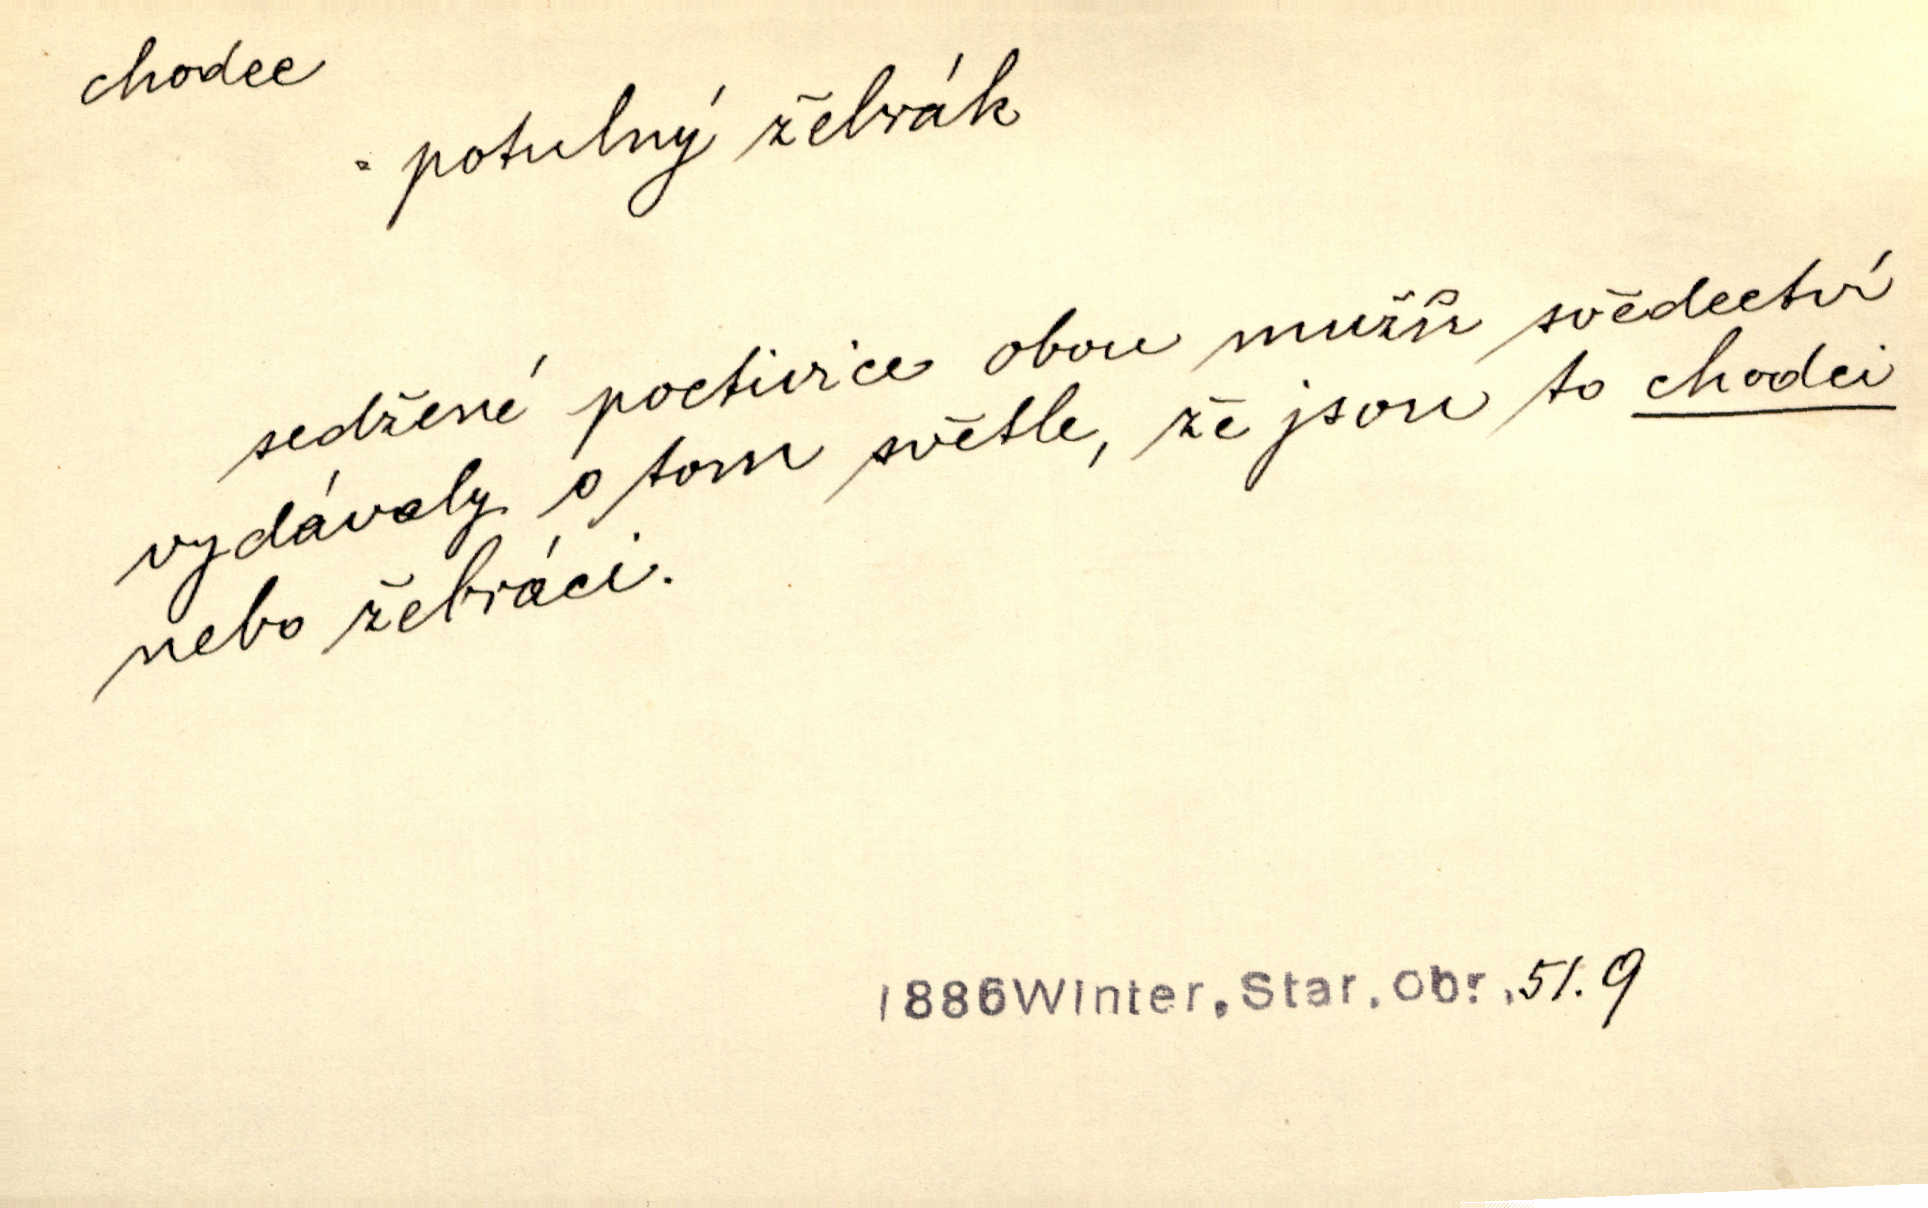 chodec
= potulný žebrák
sedžené poctivice obou mužů svědectví
vydávaly o tom světle, že jsou to chodci
nebo žebráci.
1886 Winter, Star. Obr., 51.9